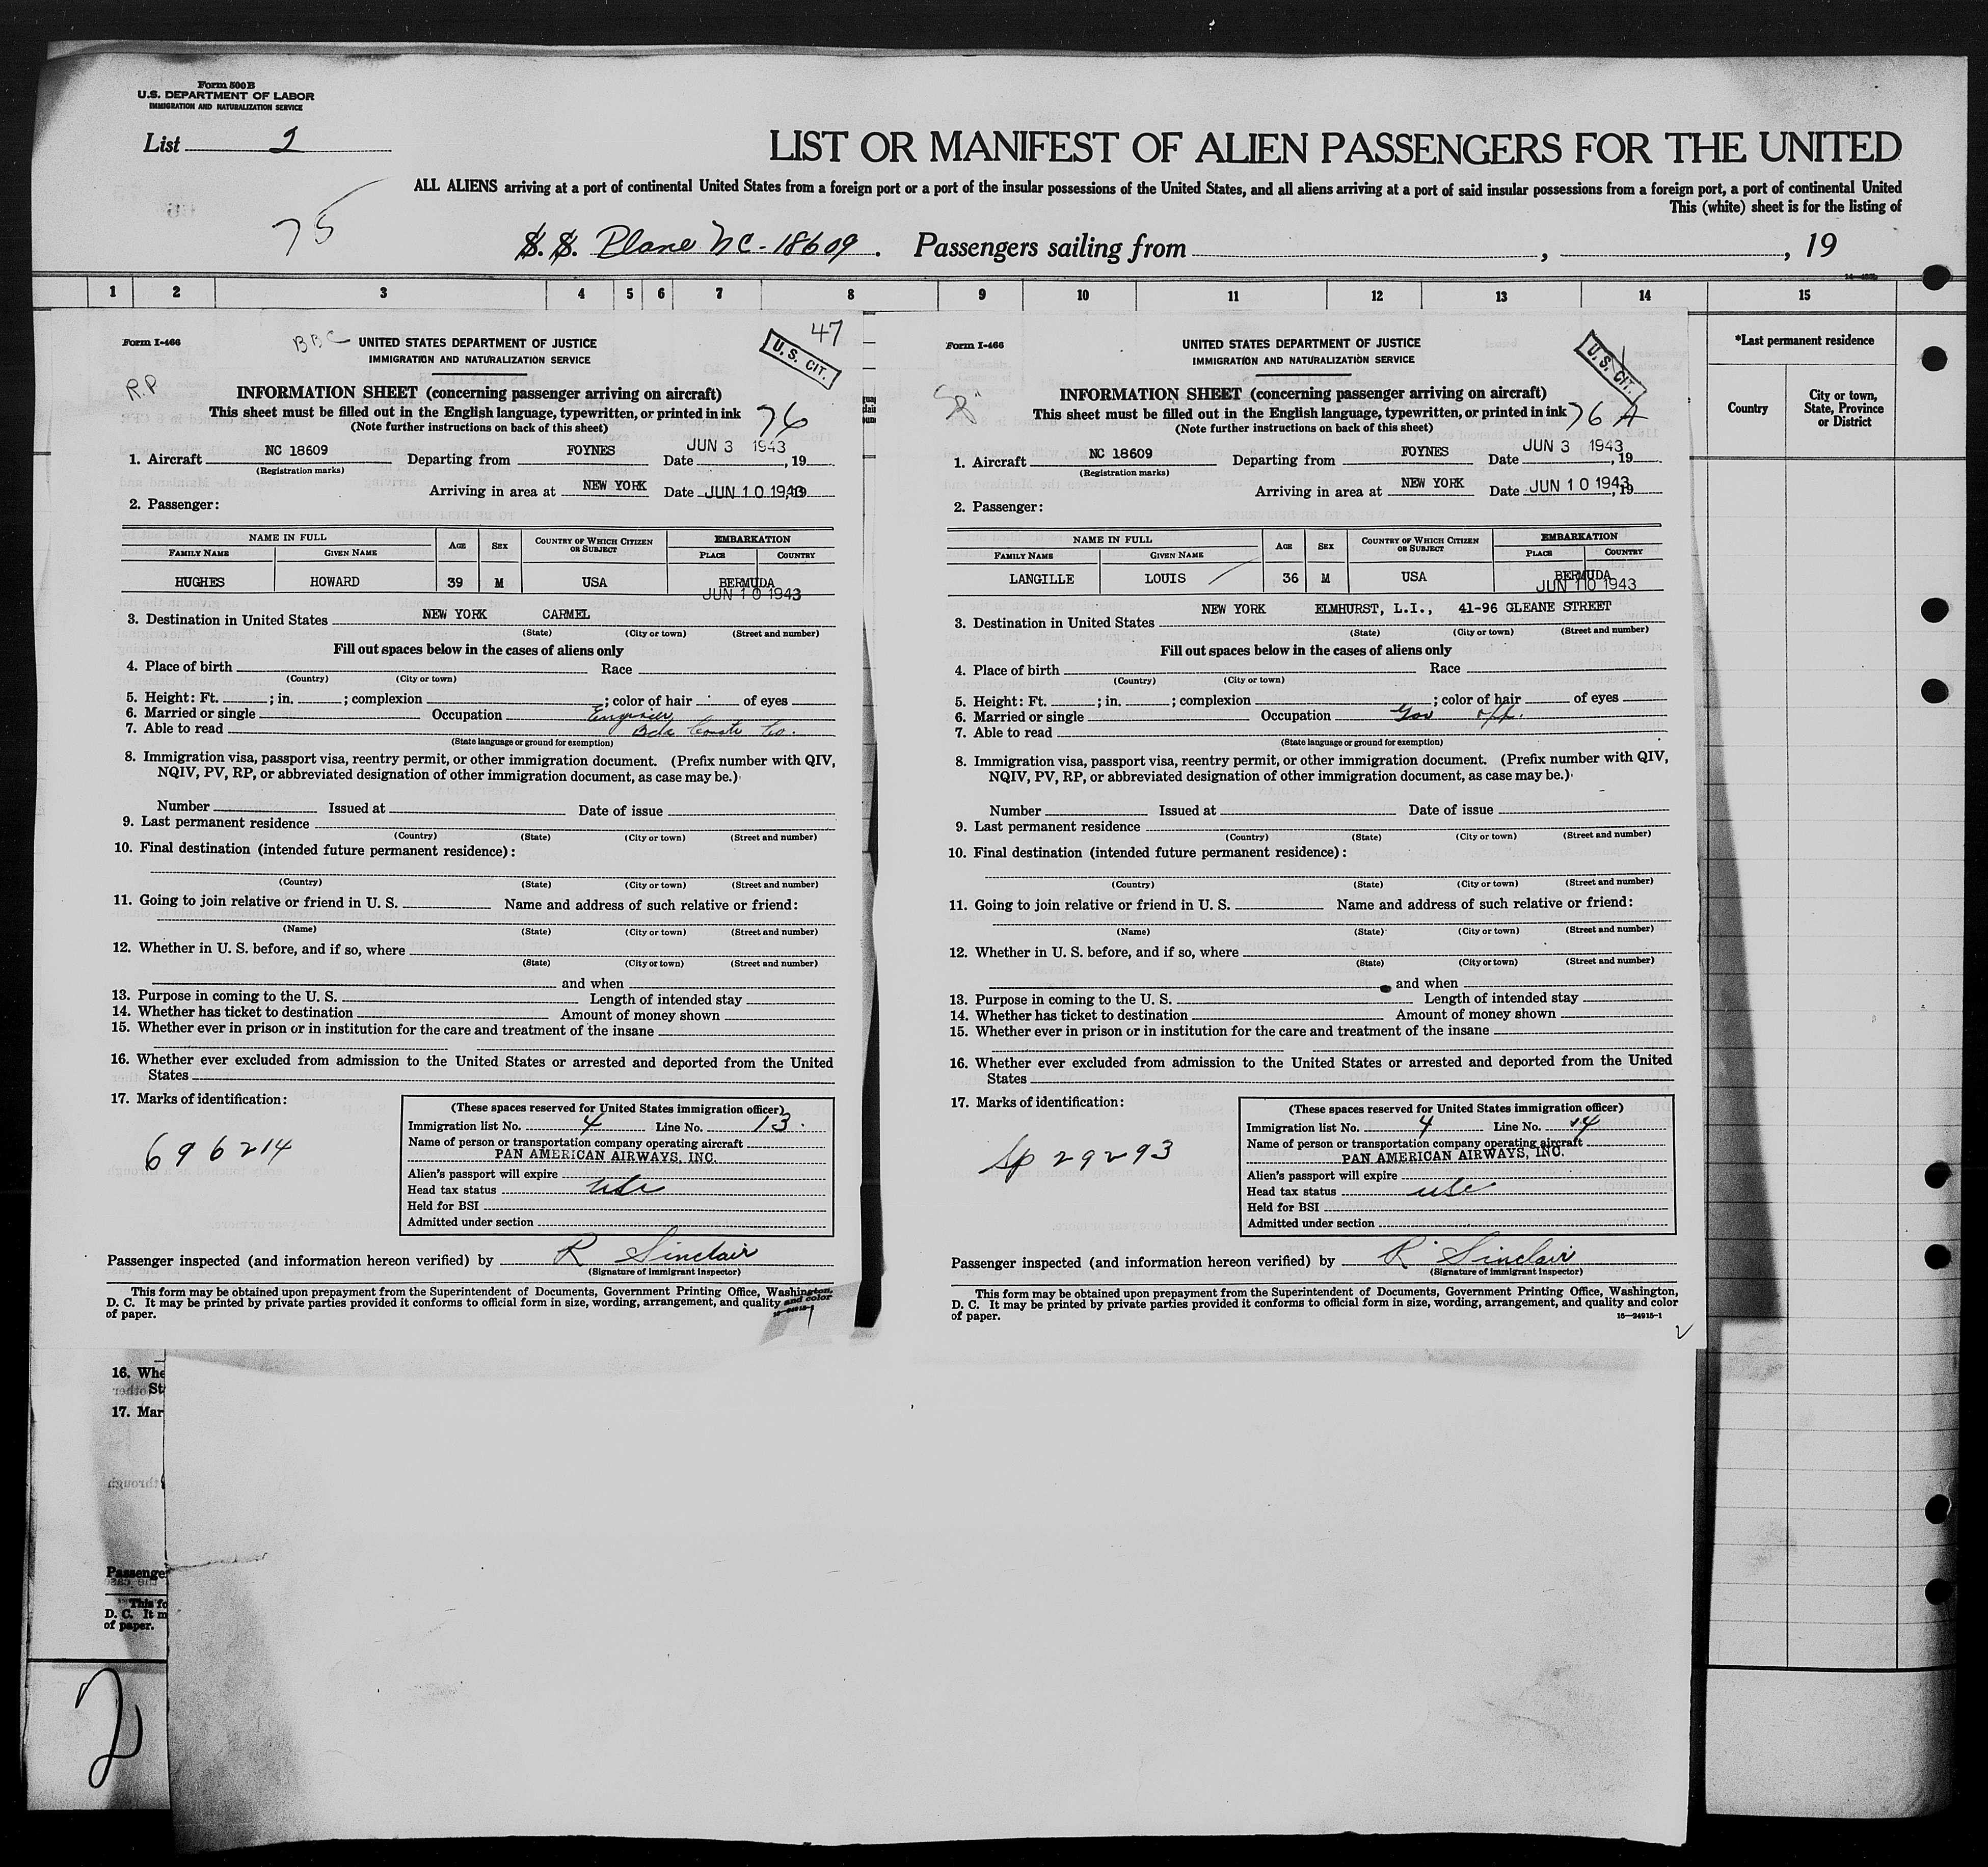 Form 500B
U.S. DEPARTMENT OF LABOR
IMMIGRATION AND NATURALIZATION SERVICE
List 2
LIST OR MANIFEST OF ALIEN PASSENGERS FOR THE UNITED
ALL ALIENS arriving at a port of continental United States from a foreign port or a port of the insular possessions of the United States, and all aliens arriving at a port of said insular possessions from a foreign port, a port of continental United
This (white) sheet is for the listing of
75
S. S. Plane NC-18609. Passengers sailing from , , 19
1 2 3 4 5 6 7 8 9 10 11 12 13 14 15
*Last permanent residence
Country
City or town, State, Province or District
Form I-466
BBC
47
U. S. CIT.
UNITED STATES DEPARTMENT OF JUSTICE
IMMIGRATION AND NATURALIZATION SERVICE
R.P
INFORMATION SHEET (concerning passenger arriving on aircraft)
This sheet must be filled out in the English language, typewritten, or printed in ink
76
(Note further instructions on back of this sheet)
1. Aircraft NC 18609 Departing from FOYNES Date JUN 3 1943, 19
(Registration marks)
Arriving in area at NEW YORK Date JUN 10 1943, 19
2. Passenger:
NAME IN FULL AGE SEX COUNTRY OF WHICH CITIZEN OR SUBJECT EMBARKATION
FAMILY NAME GIVEN NAME PLACE COUNTRY
HUGHES HOWARD 39 M USA BERMUDA
JUN 10 1943
3. Destination in United States NEW YORK CARMEL
(State) (City or town) (Street and number)
Fill out spaces below in the cases of aliens only
4. Place of birth Race
(Country) (City or town)
5. Height: Ft. ; in. ; complexion ; color of hair of eyes
6. Married or single Occupation Engineer
7. Able to read Bda Constr Co.
(State language or ground for exemption)
8. Immigration visa, passport visa, reentry permit, or other immigration document. (Prefix number with QIV,
NQIV, PV, RP, or abbreviated designation of other immigration document, as case may be.)
Number Issued at Date of issue
9. Last permanent residence
(Country) (State) (City or town) (Street and number)
10. Final destination (intended future permanent residence):
(Country) (State) (City or town) (Street and number)
11. Going to join relative or friend in U. S. Name and address of such relative or friend:
(Name) (State) (City or town) (Street and number)
12. Whether in U. S. before, and if so, where
(State) (City or town) (Street and number)
and when
13. Purpose in coming to the U. S. Length of intended stay
14. Whether has ticket to destination Amount of money shown
15. Whether ever in prison or in institution for the care and treatment of the insane
16. Whether ever excluded from admission to the United States or arrested and deported from the United
States
17. Marks of identification:
696214
(These spaces reserved for United States immigration officer)
Immigration list No. 4 Line No. 13.
Name of person or transportation company operating aircraft
PAN AMERICAN AIRWAYS, INC.
Alien's passport will expire
Head tax status usc
Held for BSI
Admitted under section
Passenger inspected (and information hereon verified) by R Sinclair
(Signature of immigrant inspector)
This form may be obtained upon prepayment from the Superintendent of Documents, Government Printing Office, Washington,
D. C. It may be printed by private parties provided it conforms to official form in size, wording, arrangement, and quality and color
of paper.
16—24915-1
Form I-466
U. S. CIT.
UNITED STATES DEPARTMENT OF JUSTICE
IMMIGRATION AND NATURALIZATION SERVICE
INFORMATION SHEET (concerning passenger arriving on aircraft)
This sheet must be filled out in the English language, typewritten, or printed in ink
76 A
(Note further instructions on back of this sheet)
1. Aircraft NC 18609 Departing from FOYNES Date JUN 3 1943, 19
(Registration marks)
Arriving in area at NEW YORK Date JUN 10 1943, 19
2. Passenger:
NAME IN FULL AGE SEX COUNTRY OF WHICH CITIZEN OR SUBJECT EMBARKATION
FAMILY NAME GIVEN NAME PLACE COUNTRY
LANGILLE LOUIS 36 M USA BERMUDA
JUN 10 1943
3. Destination in United States NEW YORK ELMHURST, L.I., 41-96 GLEANE STREET
(State) (City or town) (Street and number)
Fill out spaces below in the cases of aliens only
4. Place of birth Race
(Country) (City or town)
5. Height: Ft. ; in. ; complexion ; color of hair of eyes
6. Married or single Occupation Gov off.
7. Able to read
(State language or ground for exemption)
8. Immigration visa, passport visa, reentry permit, or other immigration document. (Prefix number with QIV,
NQIV, PV, RP, or abbreviated designation of other immigration document, as case may be.)
Number Issued at Date of issue
9. Last permanent residence
(Country) (State) (City or town) (Street and number)
10. Final destination (intended future permanent residence):
(Country) (State) (City or town) (Street and number)
11. Going to join relative or friend in U. S. Name and address of such relative or friend:
(Name) (State) (City or town) (Street and number)
12. Whether in U. S. before, and if so, where
(State) (City or town) (Street and number)
and when
13. Purpose in coming to the U. S. Length of intended stay
14. Whether has ticket to destination Amount of money shown
15. Whether ever in prison or in institution for the care and treatment of the insane
16. Whether ever excluded from admission to the United States or arrested and deported from the United
States
17. Marks of identification:
Sp 29293
(These spaces reserved for United States immigration officer)
Immigration list No. 4 Line No. 14
Name of person or transportation company operating aircraft
PAN AMERICAN AIRWAYS, INC.
Alien's passport will expire
Head tax status usc
Held for BSI
Admitted under section
Passenger inspected (and information hereon verified) by R Sinclair
(Signature of immigrant inspector)
This form may be obtained upon prepayment from the Superintendent of Documents, Government Printing Office, Washington,
D. C. It may be printed by private parties provided it conforms to official form in size, wording, arrangement, and quality and color
of paper.
16—24915-1
16. Whe
St
17. Mar
Passenge
This fo
D. C. It m
of paper.
2